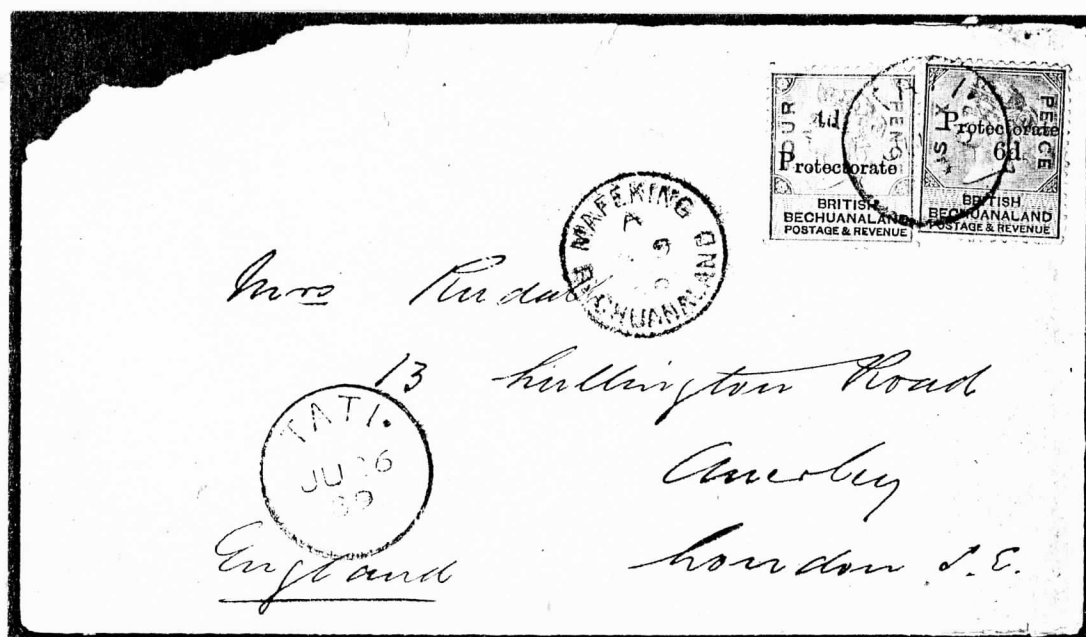 FOUR PENCE
4d.
Protectorate
BRITISH
BECHUANALAND
POSTAGE & REVENUE
SIX PENCE
Protectorate
6d.
BRITISH
BECHUANALAND
POSTAGE & REVENUE
MAFEKING
A
BECHUANALAND
Mrs
13 Lullington Road
TATI.
JU 26
89
Anerley
London S.E.
England